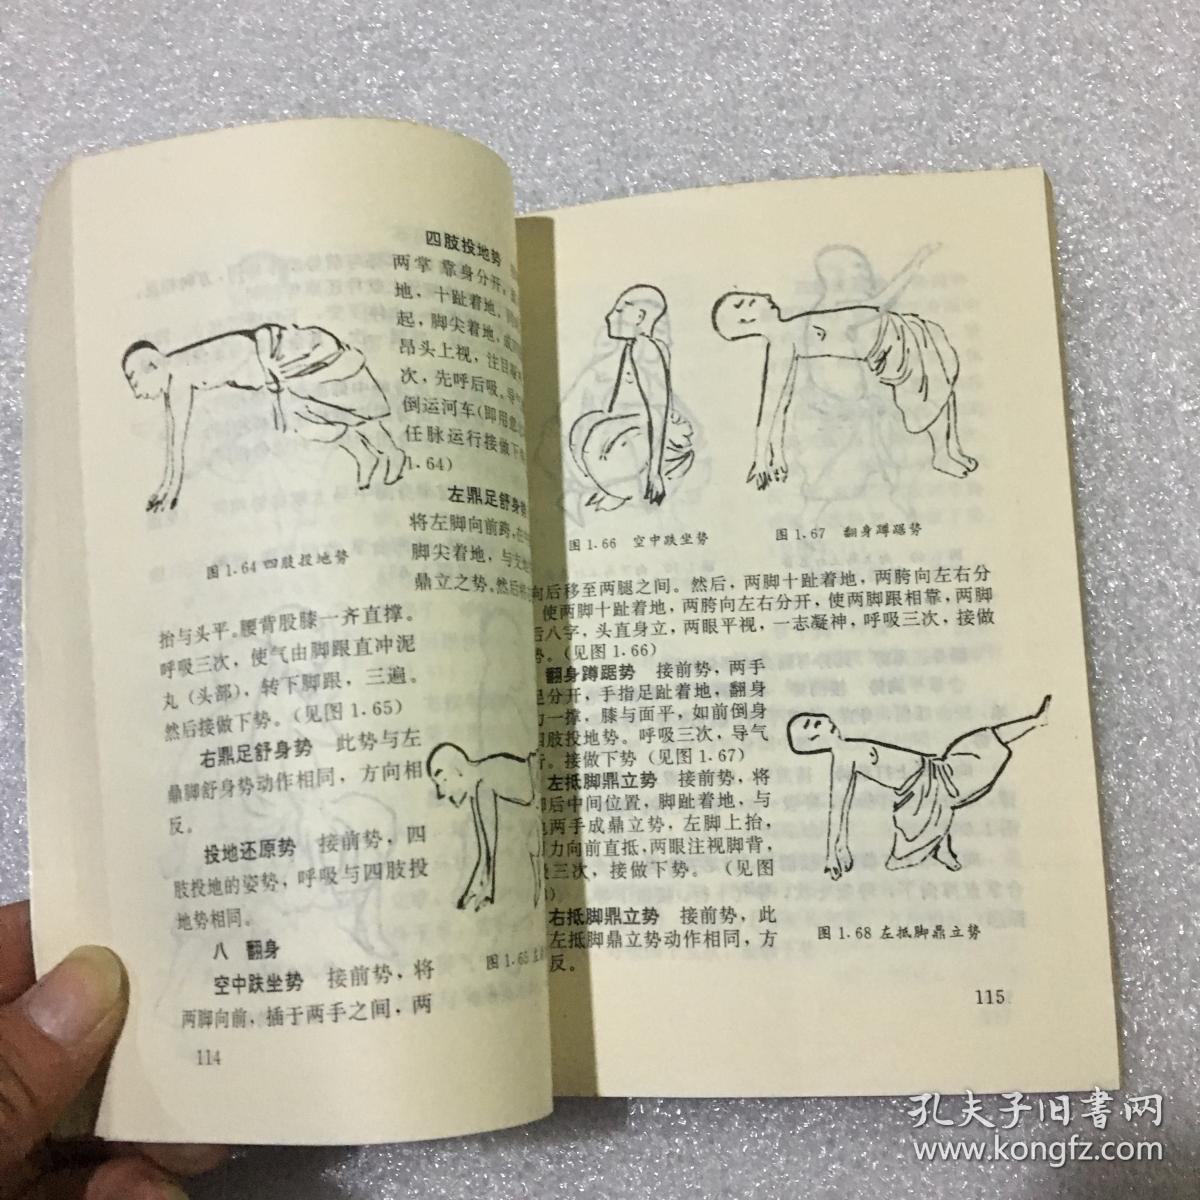 四肢投地势
两掌 靠身分开,
地,十趾着地,
起,脚尖着地,
昂头上视,注目
次,先呼后吸。导气
倒运河车(即用意
任脉运行接做下
1·64)
左鼎足舒身势
将左脚向前跨,在
脚尖着地,与支
鼎立之势。然后
图 1·64 四肢投地势
抬与头平。腰背股膝一齐直撑。
呼吸三次,使气由脚跟直冲泥
丸(头部),转下脚跟,三遍。
然后接做下势。(见图 1·65)
右鼎足舒身势 此势与左
鼎脚舒身势动作相同,方向相
反。
投地还原势 接前势,四
肢投地的姿势,呼吸与四肢投
地势相同。
八 翻身
空中趺坐势 接前势,将
两脚向前,插于两手之间,两
图 1·65 左
114
图 1·66 空中趺坐势
图 1·67 翻身蹲踞势
向后移至两腿之间。然后,两脚十趾着地,两胯向左右分
使两脚十趾着地,两胯向左右分开,使两脚跟相靠,两脚
后八字,头直身立,两眼平视,一志凝神,呼吸三次,接做
势。(见图 1·66)
翻身蹲踞势 接前势,两手
足分开,手指足趾着地,翻身
力一撑,膝与面平,如前倒身
四肢投地势。呼吸三次,导气
行。接做下势(见图 1·67)
左抵脚鼎立势 接前势,将
脚后中间位置,脚趾着地,与
地两手成鼎立势,左脚上抬,
用力向前直抵,两眼注视脚背,
吸三次,接做下势。(见图
)
右抵脚鼎立势 接前势,此
左抵脚鼎立势动作相同,方
反。
图 1·68 左抵脚鼎立势
115
孔夫子旧书网
www.kongfz.com